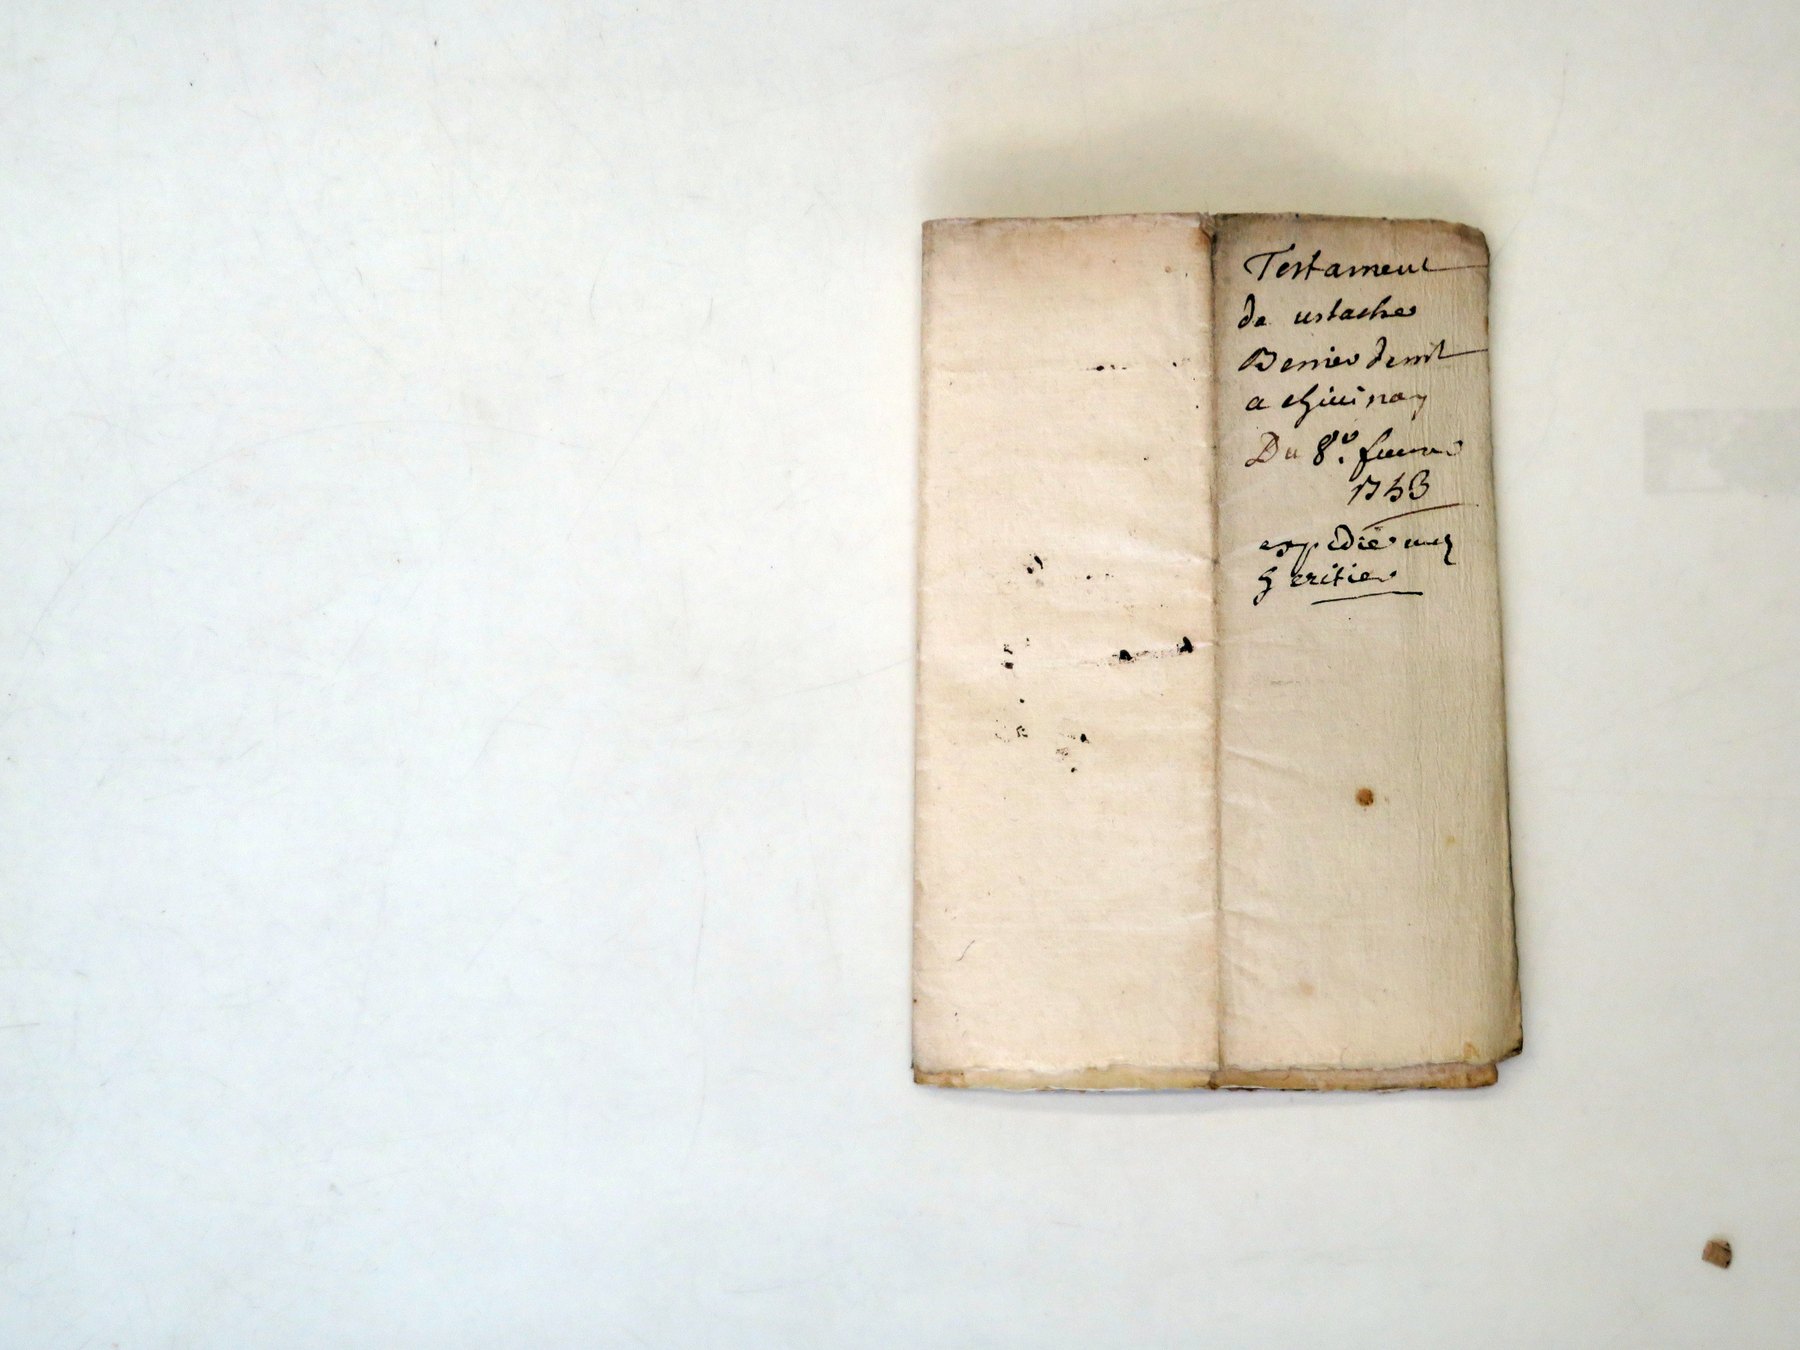 Testament
de ustache
Bernier demt
a chivinay
Du 8e. fevrier
1743
expedié aux
heritier